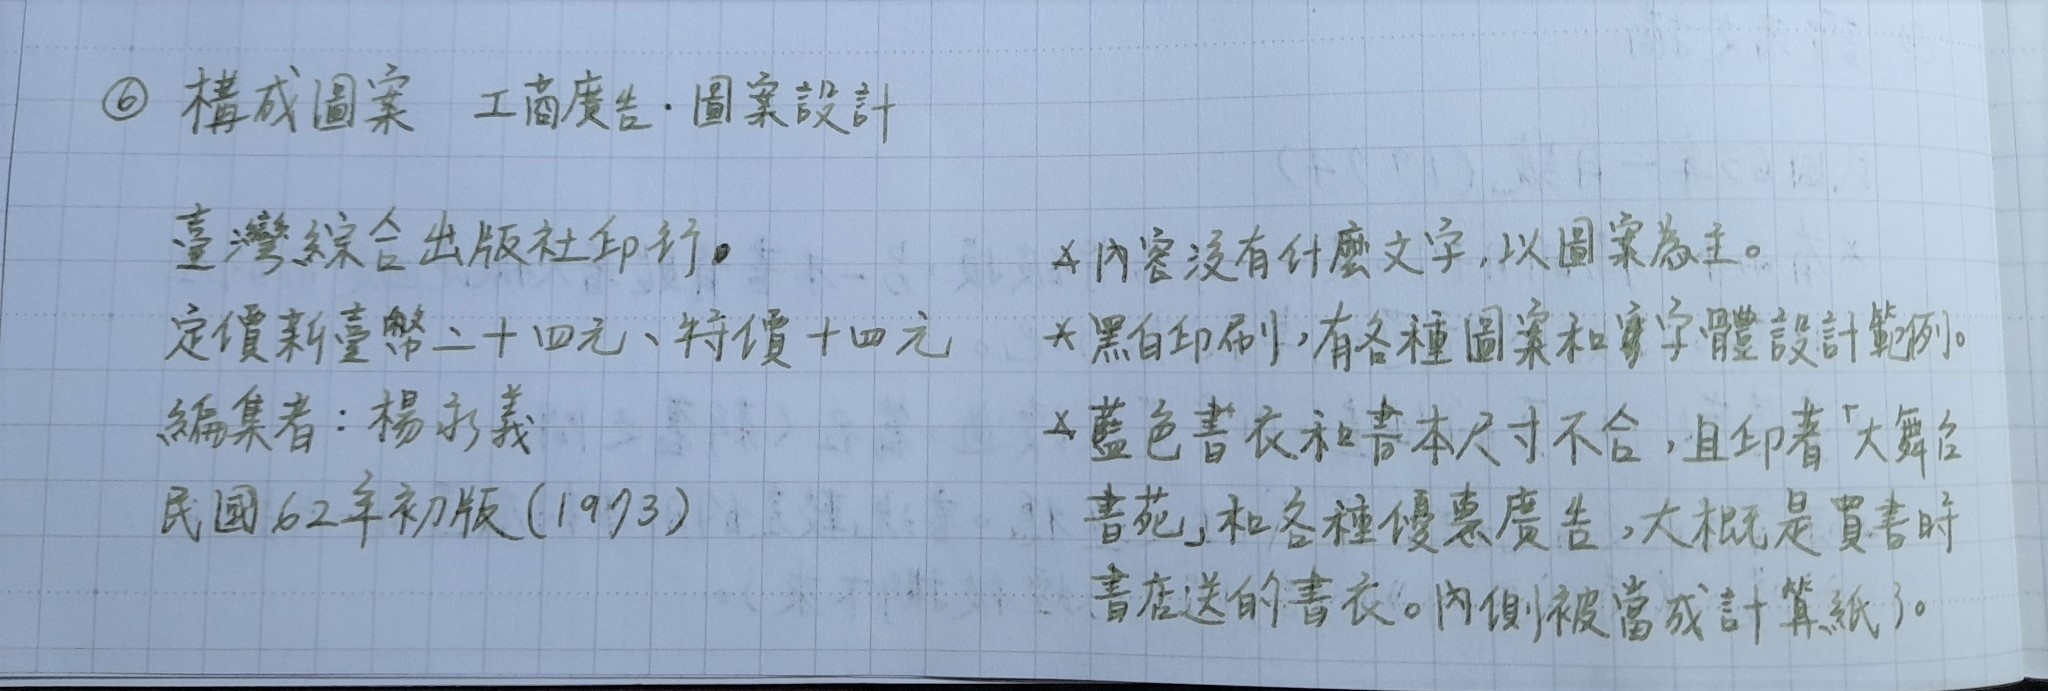 ⑥ 構成圖案　工商廣告・圖案設計
臺灣綜合出版社印行。
定價新臺幣二十四元、特價十四元
編集者：楊永義
民國62年初版(1973)
*內容沒有什麼文字，以圖案為主。
*黑白印刷，有各種圖案和字體設計範例。
*藍色書衣和書本尺寸不合，且印著「大舞台
書苑」和各種優惠廣告，大概是買書時
書店送的書衣。內側被當成計算紙了。